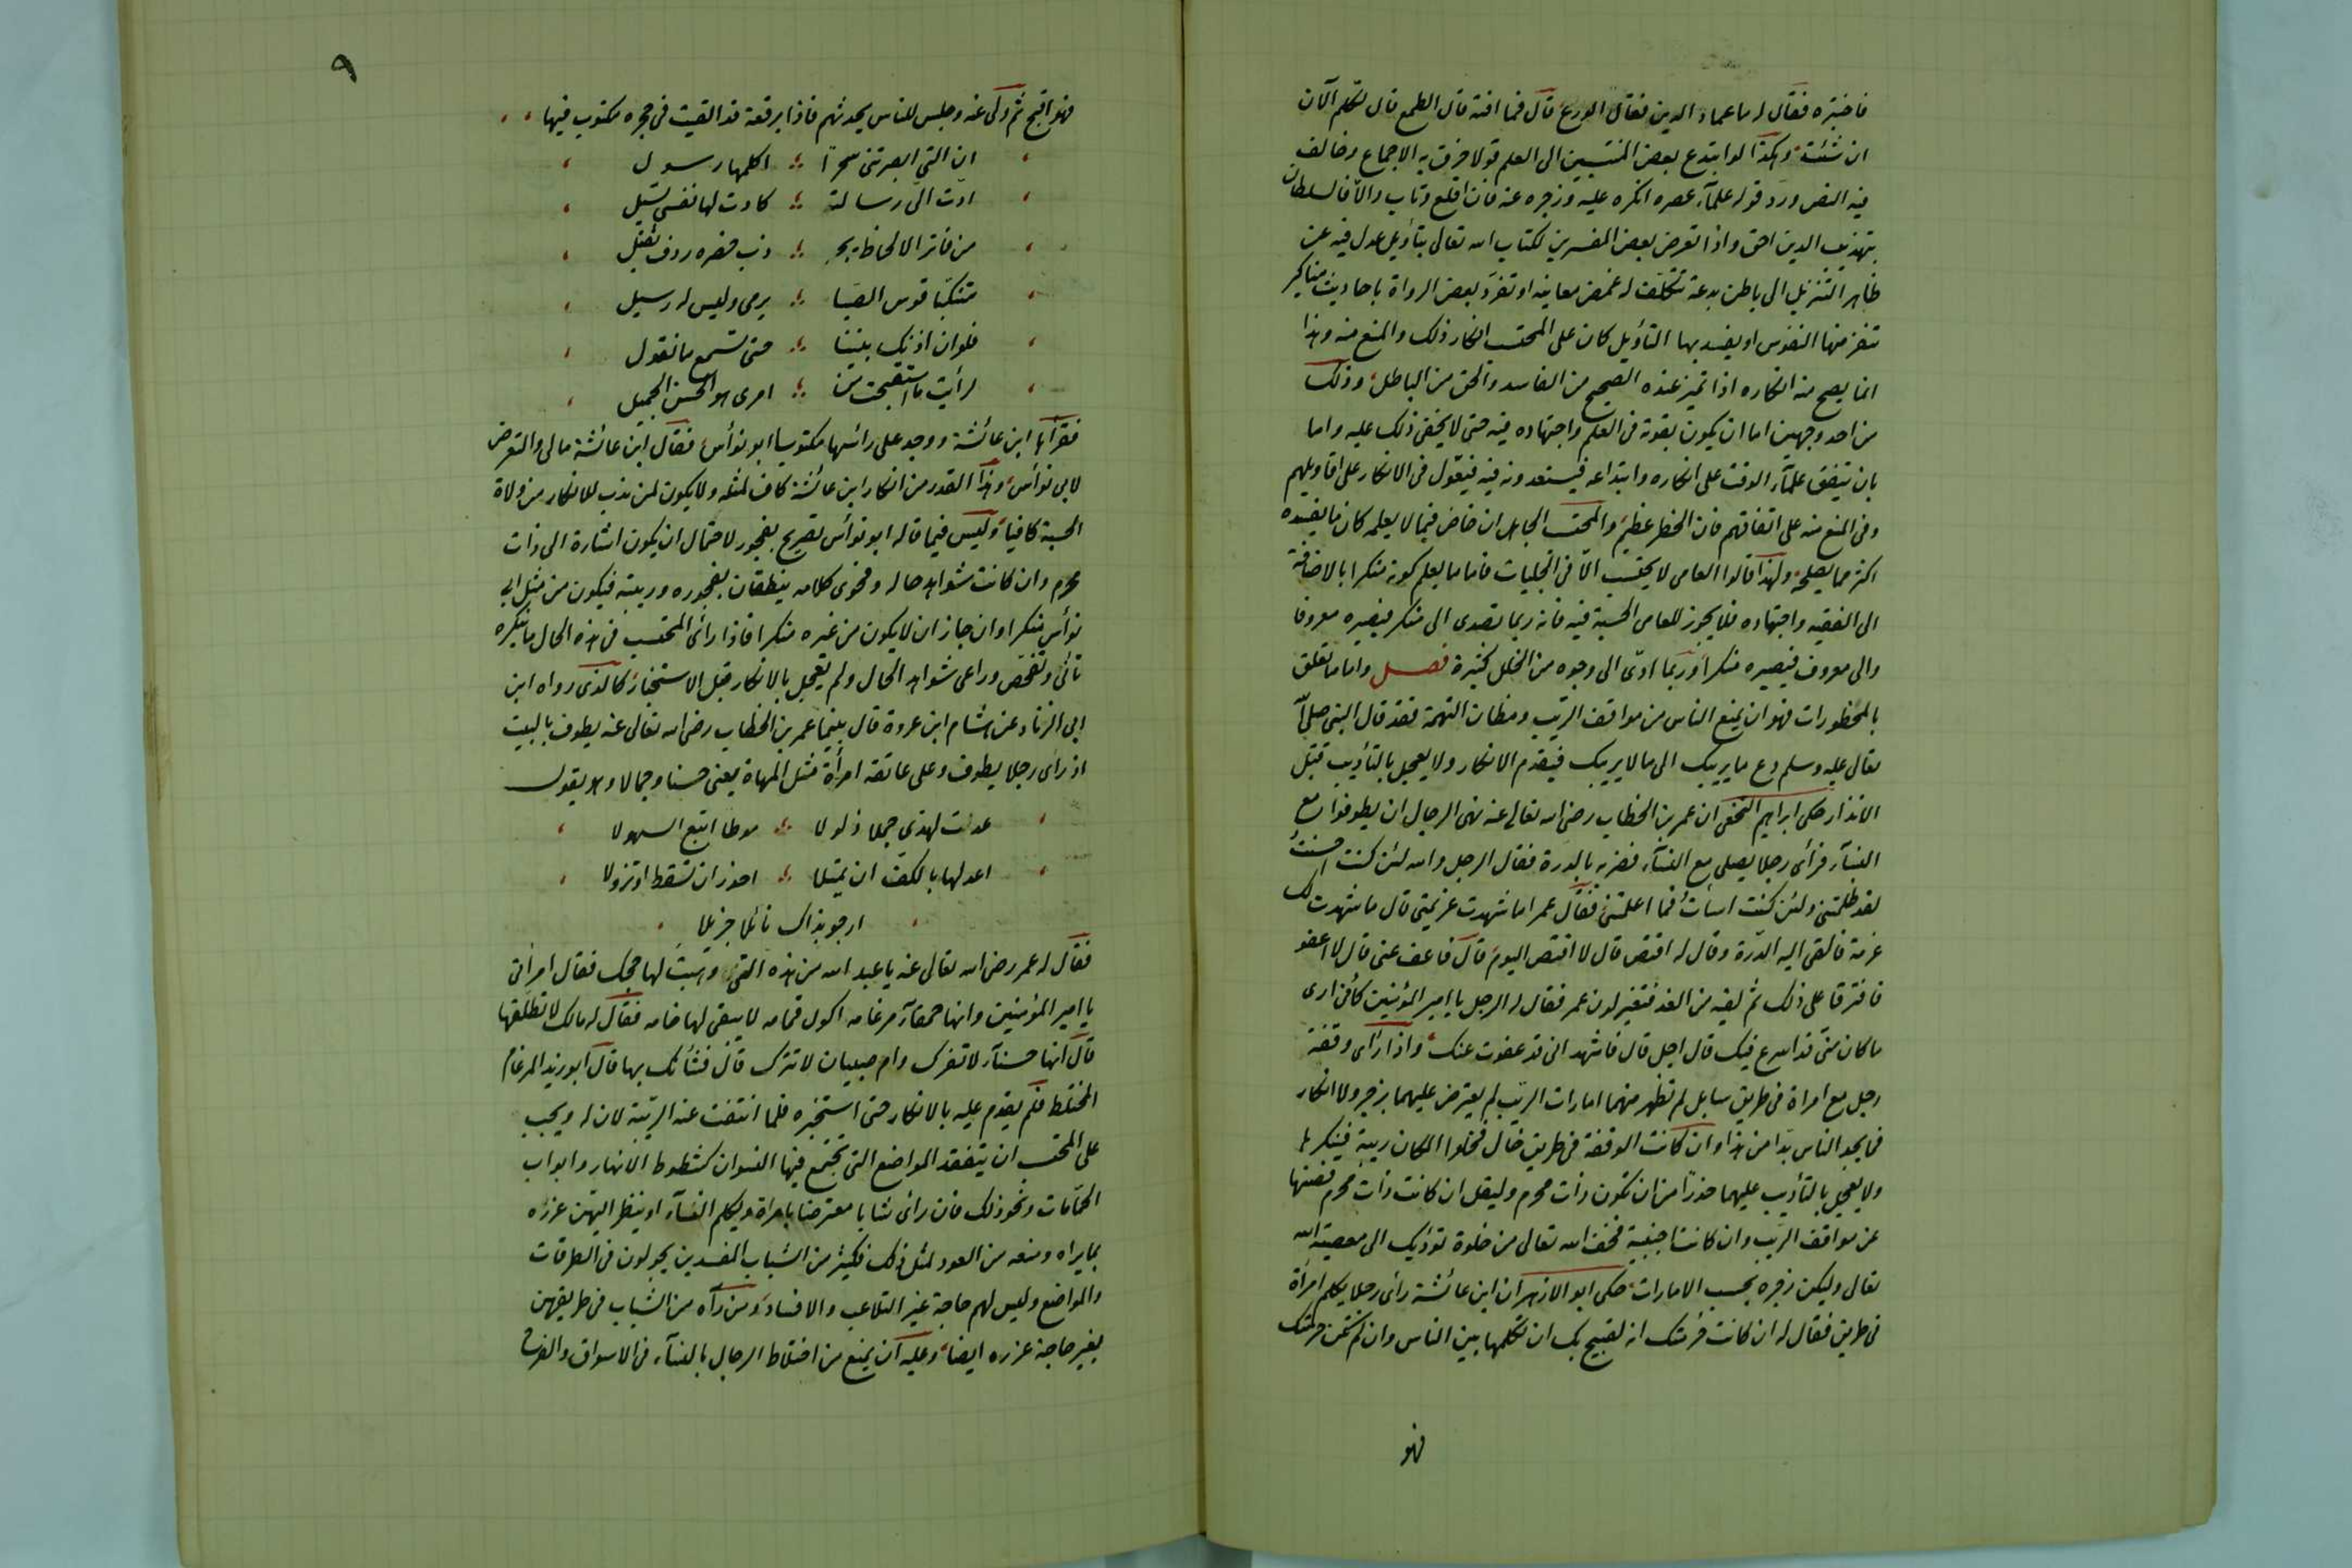 فاختبره فقال له ما عماد الدين فقال الورع قال فما افته قال الطمع قال تكلم الآن
ان شئت وهكذا لو ابتدع بعض المنتسبين الى العلم قولا خرق به الاجماع وخالف
فيه النص ورد قوله علمآء عصره انكره عليه وزجره عنه فان اقلع وتاب والا فالسلطان
بتهذيب الدين احق واذا تعرض بعض المفسرين لكتاب الله تعالى بتأويل عدل فيه عن
ظاهر التنزيل الى باطن بدعة تتكلف له غمض معانيه او تفرد بعض الرواة باحاديث مناكير
تنفر منها النفوس او يفسد بها التأويل كان على المحتسب انكار ذلك والمنع منه وهذا
انما يصح منه انكاره اذا تميز عنده الصحيح من الفاسد والحق من الباطل وذلك
من احد وجهين اما ان يكون بقوته فى العلم واجتهاده فيه حتى لا يخفى ذلك عليه واما
بان يتفق علمآء الوقت على انكاره وابتداعه فيستعدونه فيه فيعول فى الانكار على اقاويلهم
وفى المنع منه على اتفاقهم فان الخطر عظيم والمحتسب الجاهل ان خاض فيما لا يعلمه كان ما يفسده
اكثر مما يصلحه ولهذا قالوا العامى لا يحتسب الا فى الجليات فاما ما يعلم كونه منكرا بالاضافة
الى الفقيه واجتهاده فلا يجوز للعامى الحسبة فيه فانه ربما تصدى الى منكر فيصيره معروفا
والى معروف فيصيره منكرا وربما ادى الى وجوه من الخلل كثيرة فصل واما ما تعلق
بالمحظورات فهو ان يمنع الناس من مواقف الريب ومظان التهمة فقد قال النبى صلى الله
تعالى عليه وسلم دع ما يريبك الى ما لا يريبك فيقدم الانكار ولا يعجل بالتأديب قبل
الانذار حكى ابراهيم النخعى ان عمر بن الخطاب رضى الله تعالى عنه نهى الرجال ان يطوفوا مع
النسآء فرأى رجلا يصلى مع النسآء فضربه بالدرة فقال الرجل والله لئن كنت احسنت
لقد ظلمتنى ولئن كنت اسأت فما اعلمتنى فقال عمر اما شهدت عزيمتى قال ما شهدت لك
عزمة فالقى اليه الدرة وقال له اقتص قال لا اقتص اليوم قال فاعف عنى قال لا اعفو
فافترقا على ذلك ثم لقيه من الغد فتغير لون عمر فقال له الرجل يا امير المؤمنين كأنى ارى
ما كان منى قد اسرع فيك قال اجل قال فاشهد انى قد عفوت عنك واذا رأى وقفة
رجل مع امراة فى طريق سابل لم تظهر منهما امارات الريب لم يعترض عليهما بزجر ولا انكار
فما يجد الناس بدا من هذا وان كانت الوقفة فى طريق خال فخلوا المكان ريبة فينكرها
ولا يعجل بالتأديب عليهما حذرا من ان تكون ذات محرم وليقل ان كانت ذات محرم فصنها
عن مواقف الريب وان كانت اجنبية فخف الله تعالى من خلوة تؤديك الى معصية الله
تعالى وليكن زجره بحسب الامارات حكى ابو الازهر ان ابن عائشة رأى رجلا يكلم امرأة
فى طريق فقال له ان كانت حرمتك انه لقبيح بك ان تكلمها بين الناس وان لم تكن حرمتك
فهو
٩
فهو اقبح ثم ولى عنه وجلس للناس يحدثهم فاذا برقعة قد القيت فى حجره مكتوب فيها
ان التى ابصرتنى سحرا اكلمها رسول
ادت الى رسالة كادت لها نفسى تسيل
من فاتر الالحاظ يجذب خصره ردف ثقيل
متنكبا قوس الصبا يرمى وليس له رسيل
فلو ان اذنك بيننا حتى تسمع ما نقول
لرأيت ما استقبحت من امرى هو الحسن الجميل
فقرأها ابن عائشة ووجد على رأسها مكتوبا ابو نوأس فقال ابن عائشة مالى والتعرض
لابى نوأس وهذا القدر من انكار ابن عائشة كاف لمثله ولا يكون لمن ندب للانكار من ولاة
الحسبة كافيا وليس فيما قاله ابو نوأس تصريح بفجور لاحتمال ان يكون اشارة الى ذات
محرم وان كانت شواهد حاله وفحوى كلامه ينطقان بفجوره وريبته فيكون من مثل ابى
نوأس منكرا وان جاز ان لا يكون من غيره منكرا فاذا رأى المحتسب فى هذه الحال ما ينكره
تأنى وتفحص وراعى شواهد الحال ولم يعجل بالانكار قبل الاستخبار كالذى رواه ابن
ابى الزناد عن هشام ابن عروة قال بينما عمر بن الخطاب رضى الله تعالى عنه يطوف بالبيت
اذ رأى رجلا يطوف وعلى عاتقه امرأة مثل المهاة يعنى حسنا وجمالا وهو يقول
عدت لهذى جملا ذلولا موطا اتبع السهولا
اعدلها بالكف ان تميلا احذر ان تسقط او تزولا
ارجو بذاك نائلا جزيلا
فقال له عمر رضى الله تعالى عنه يا عبد الله من هذه التى وهبت لها حجك فقال امرأتى
يا امير المؤمنين وانها حمقآء مرغامه اكول قمامه لا يبقى لها خامه فقال له مالك لا تطلقها
قال انها حسنآء لا تفرك وام صبيان لا تترك قال فشأنك بها قال ابو زيد المرغام
المختلط فلم يقدم عليه بالانكار حتى استخبره فلما انتفت عنه الريبة لان له ويجب
على المحتسب ان يتفقد المواضع التى تجتمع فيها النسوان كشطوط الانهار وابواب
الحمامات ونحو ذلك فان رأى شابا معترضا بامراة ويكلم النسآء او ينظر اليهن عزره
بما يراه ومنعه من العود لمثل ذلك فكثير من الشباب المفسدين يجولون فى الطرقات
والمواضع وليس لهم حاجة غير التلاعب والافساد ومن رآه من الشباب فى طريقهن
بغير حاجة عزره ايضا وعليه ان يمنع من اختلاط الرجال بالنسآء فى الاسواق والفرش